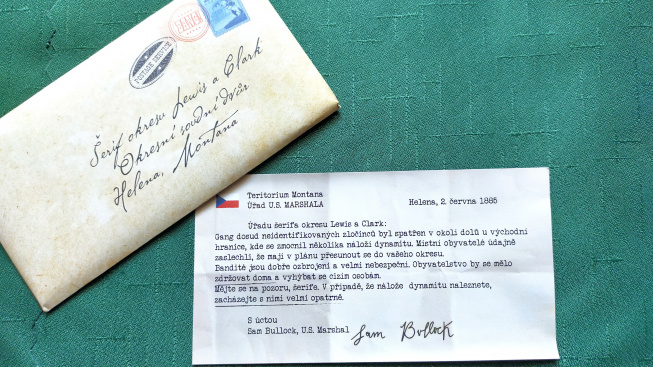 POSTAGE SERVICE
Šerif okresu Lewis a Clark
Okresní soudní dvůr
Helena, Montana
Teritorium Montana
Úřad U.S. MARSHALA
Helena, 2. června 1885
Úřadu šerifa okresu Lewis a Clark:
Gang dosud neidentifikovaných zločinců byl spatřen v okolí dolů u východní
hranice, kde se zmocnil několika náloží dynamitu. Místní obyvatelé údajně
zaslechli, že mají v plánu přesunout se do vašeho okresu.
Bandité jsou dobře ozbrojeni a velmi nebezpeční. Obyvatelstvo by se mělo
zdržovat doma a vyhýbat se cizím osobám.
Mějte se na pozoru, šerife. V případě, že nálože dynamitu naleznete,
zacházejte s nimi velmi opatrně.
S úctou
Sam Bullock, U.S. Marshal
Sam Bullock